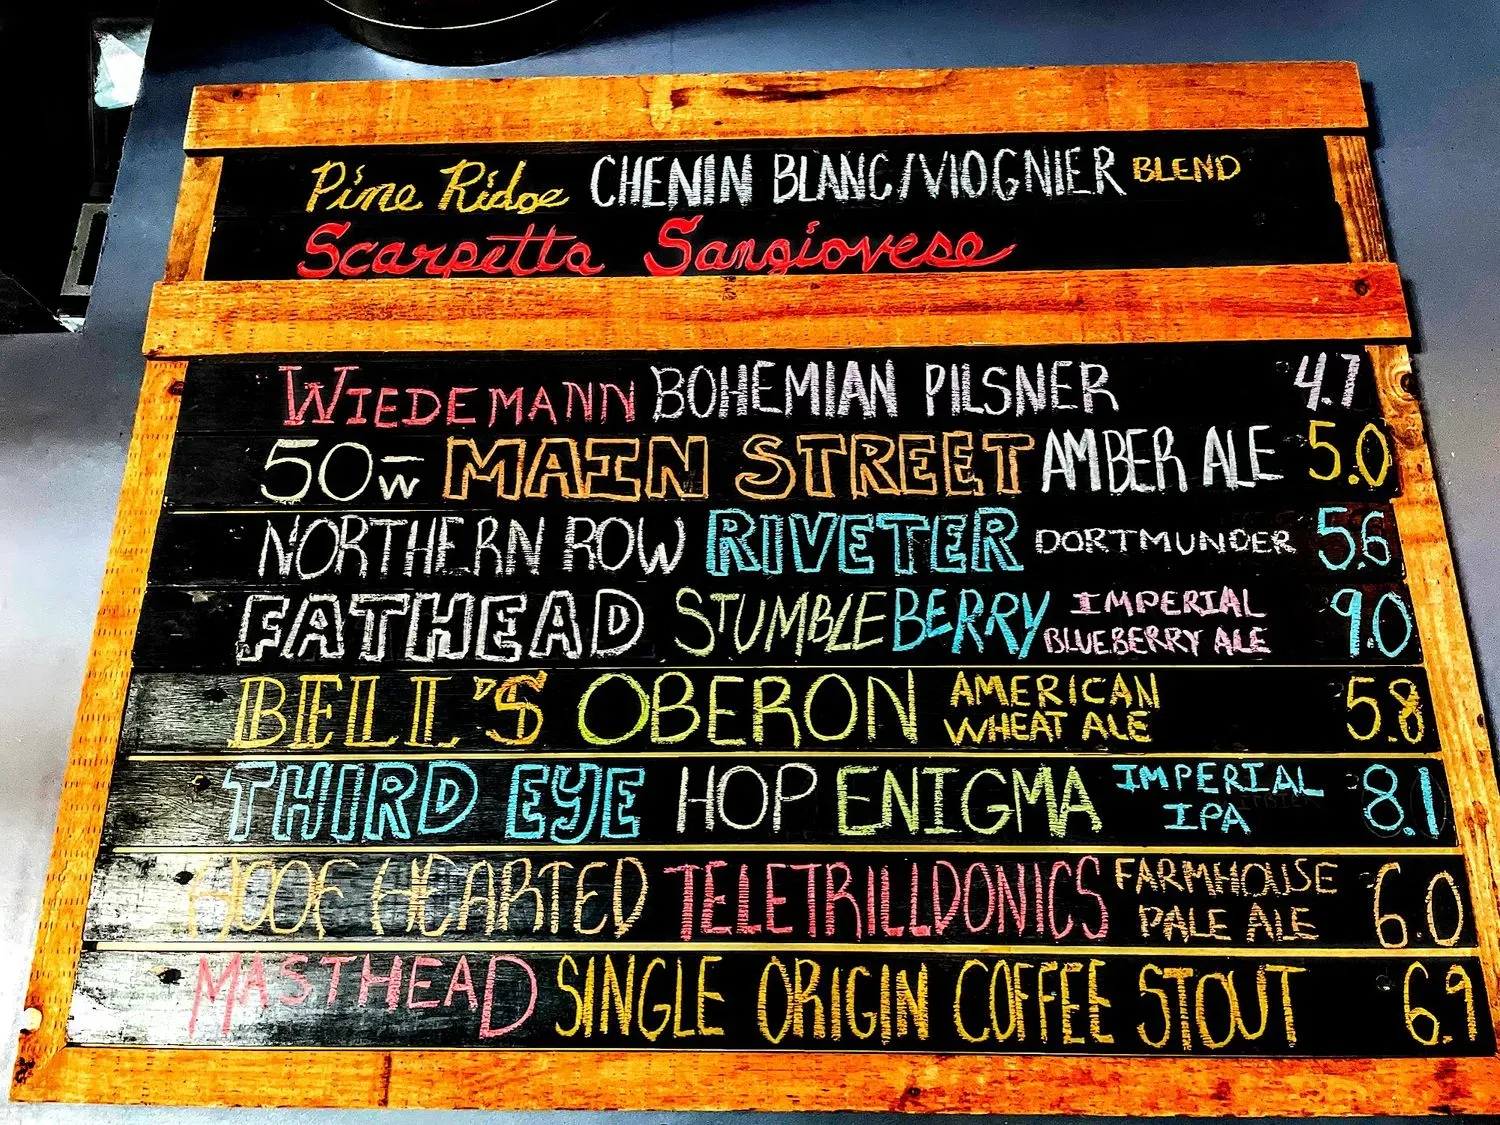 Pine Ridge CHENIN BLANC/VIOGNIER BLEND
Scarpetta Sangiovese
WIEDEMANN BOHEMIAN PILSNER 4.7
50W MAIN STREET AMBER ALE 5.0
NORTHERN ROW RIVETER DORTMUNDER 5.6
FATHEAD STUMBLEBERRY IMPERIAL BLUEBERRY ALE 9.0
BELL'S OBERON AMERICAN WHEAT ALE 5.8
THIRD EYE HOP ENIGMA IMPERIAL IPA 8.1
HOOF HEARTED TELETRILLDONICS FARMHOUSE PALE ALE 6.0
MASTHEAD SINGLE ORIGIN COFFEE STOUT 6.9